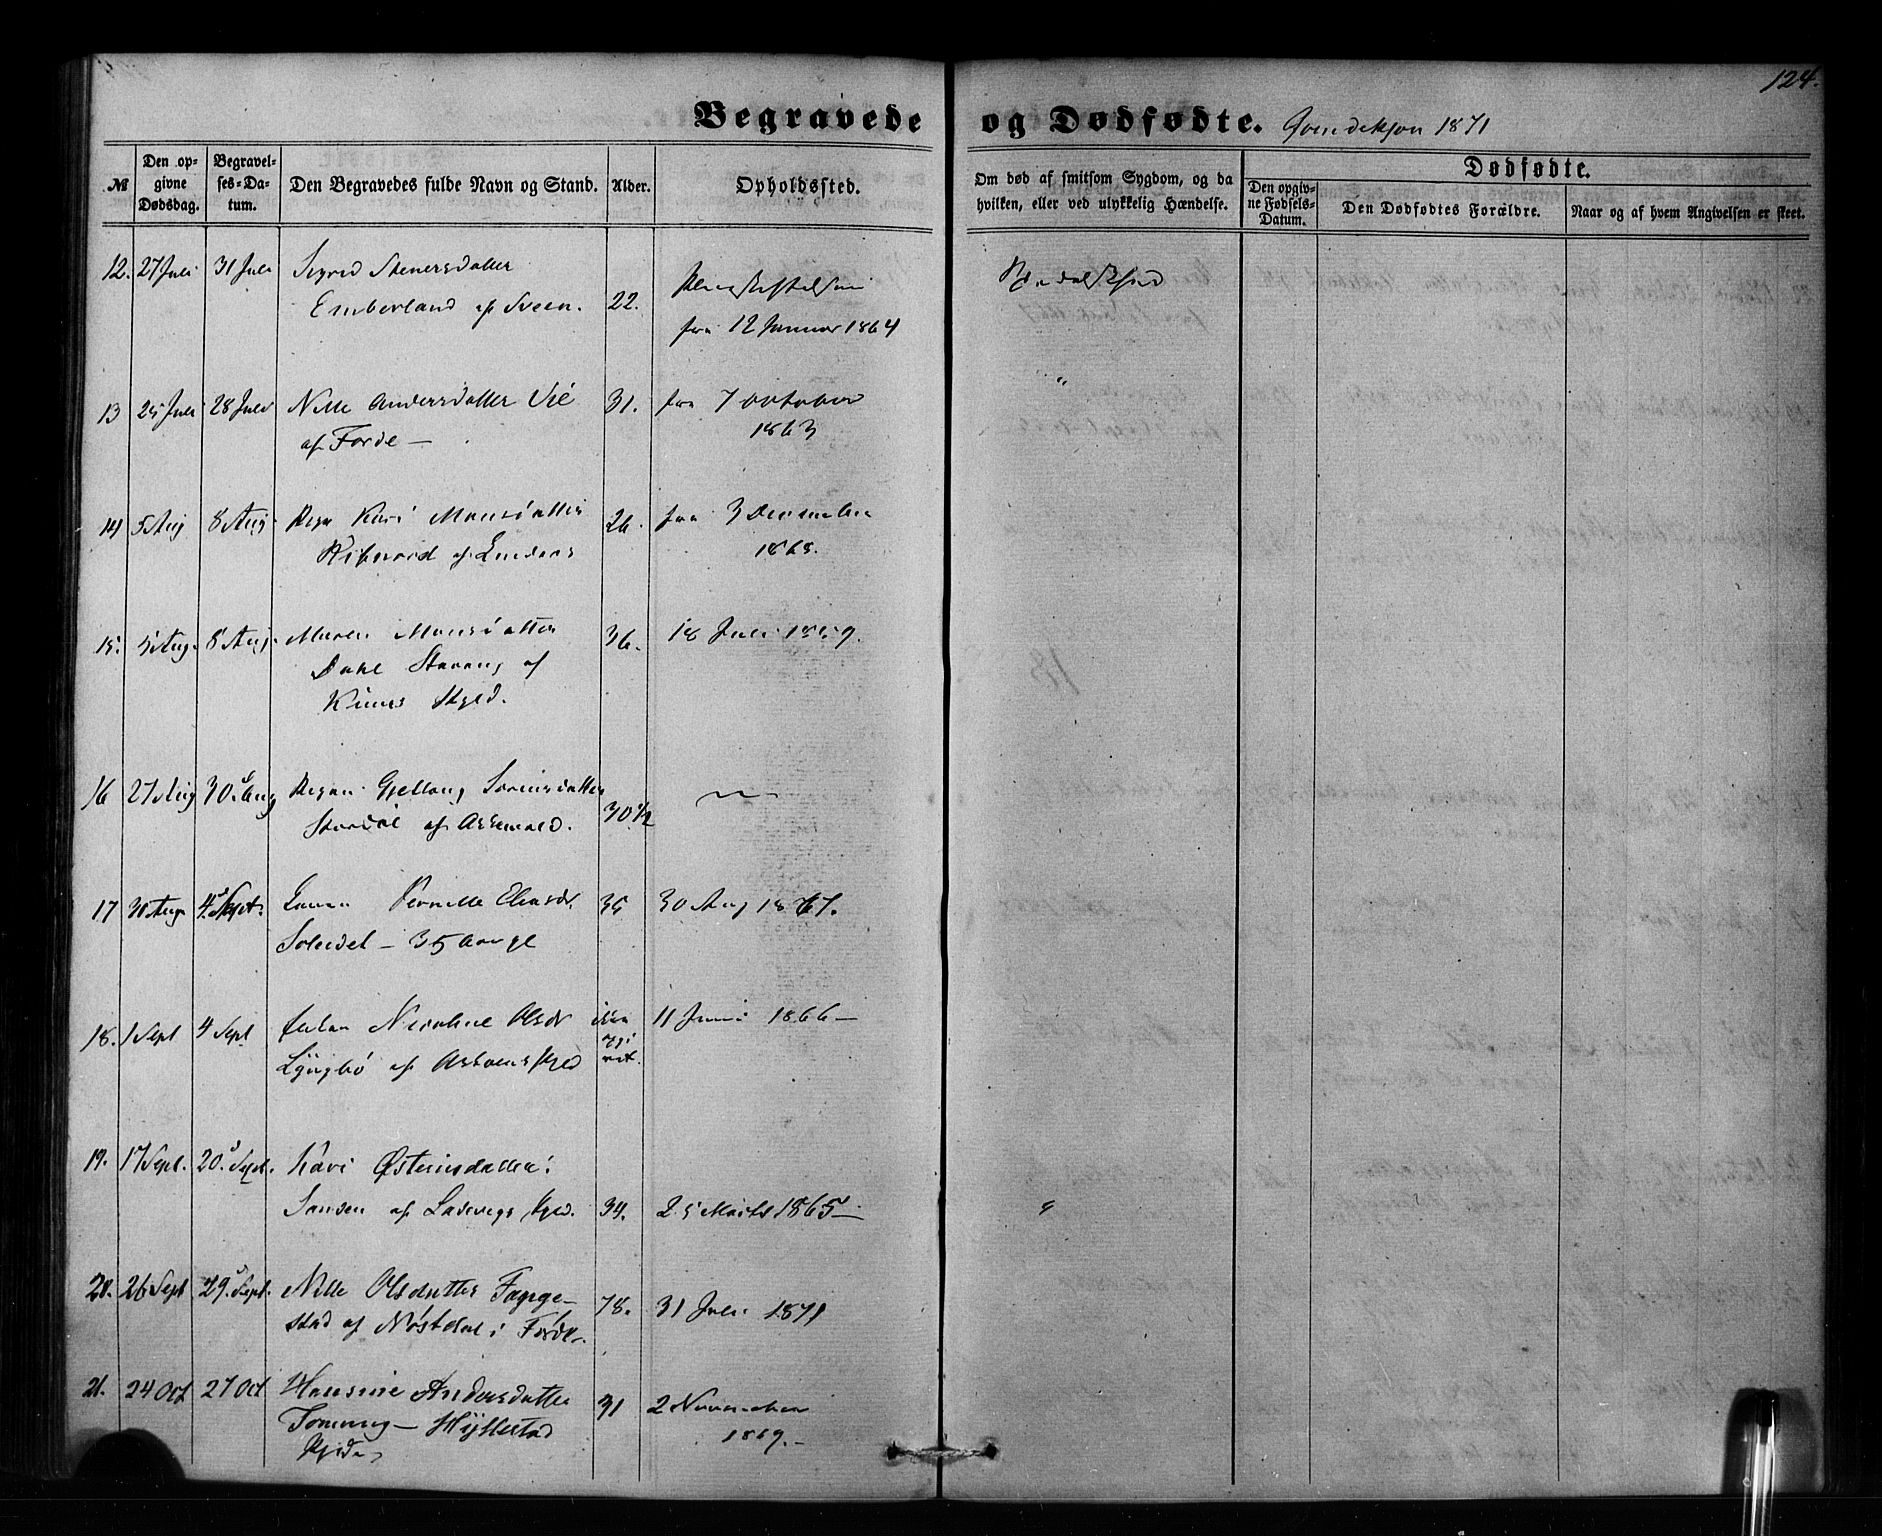 124.
Begravede og Dødfødte. Qvindekjøn 1871
№
Den opgivne Dødsdag.
Begravelses-Datum.
Den Begravedes fulde Navn og Stand.
Alder.
Opholdssted.
Om død af smitsom Sygdom, og da hvilken, eller ved ulykkelig Hændelse.
Dødfødte.
Den opgivne Fødsels-Datum.
Den Dødfødtes Forældre.
Naar og af hvem Angivelsen er skeet.
12. 27 Juli 31 Juli Sigrid Steinersdatter
Emberland af Sveen. 22. Pleiestiftelsen
fra 12 Januar 1864 Spedalskhed
13 25 Juli 28 Juli Nille Andersdatter Vie 31. fra 7 October "
af Førde — 1863
14 5 Aug 8 Aug Kari Monsdatter 26. fra 3 December
af Lindaas 1868.
15. 5 Aug. 8 Aug. Maren Monsdatter 36. 18 Juli 1859.
Dale Stavang af
Kinns Pgjld.
16 27 Aug 30. Aug Gjellaug Sørensdatter 30 1/2 "
af Askevold.
17 30 Aug 4. Sept. Pernille Eliasdr 35 30 Aug 1867.
— 35 Aar gl
18. 1 Sept 4 Sept Nicoline Olsdr ikke 11 Juni 1866 —
Lyngbø af Askøens Pgjld opgivet.
19. 17 Sept. 20. Sept. Kari Østensdatter
af Ladevigs Pgjld. 34. 25 Marts 1865 — "
20. 26 Sept 29. Sept. Nille Olsdatter
af Nøstdal i Førde. 78. 31 Juli 1871
21. 24 Oct 27 Oct Hansine Andersdatter 31 2 November
— Hyllestad 1869. —